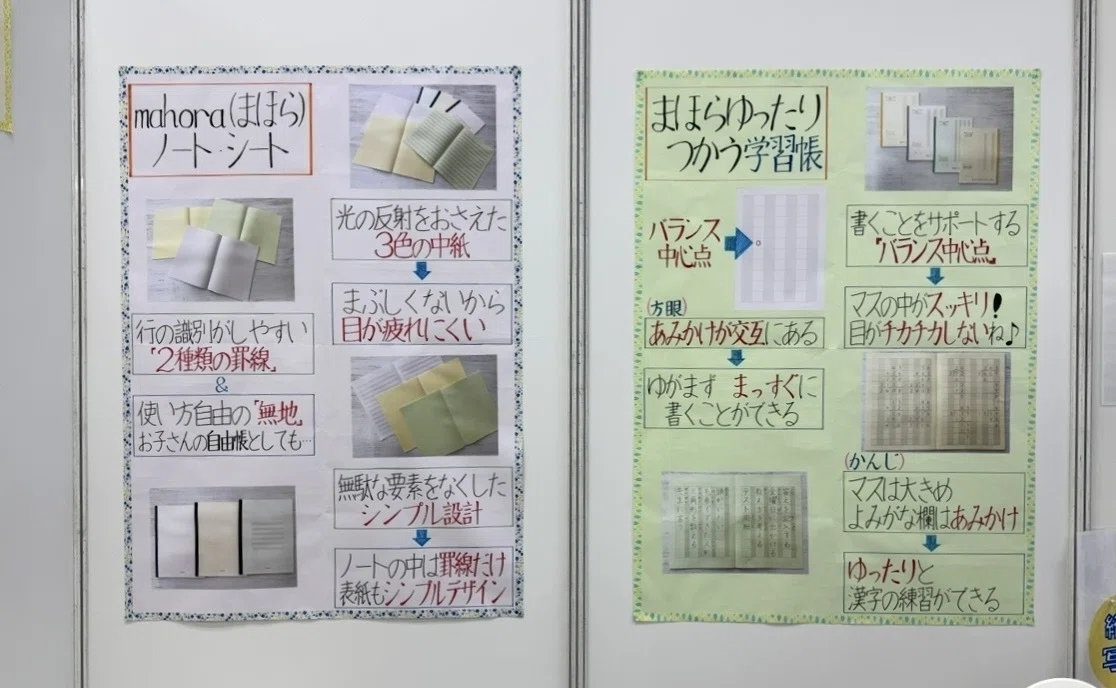 mahora(まほら)
ノート・シート
光の反射をおさえた
3色の中紙
まぶしくないから
目が疲れにくい
行の識別がしやすい
「2種類の罫線」
&
使い方自由の「無地」
お子さんの自由帳としても…
無駄な要素をなくした
シンプル設計
ノートの中は罫線だけ
表紙もシンプルデザイン
まほらゆったり
つかう学習帳
バランス
中心点
書くことをサポートする
「バランス中心点」
マスの中がスッキリ!
目がチカチカしないね♪
(方眼)
あみかけが交互にある
ゆがまず まっすぐに
書くことができる
(かんじ)
マスは大きめ
よみがな欄はあみかけ
ゆったりと
漢字の練習ができる